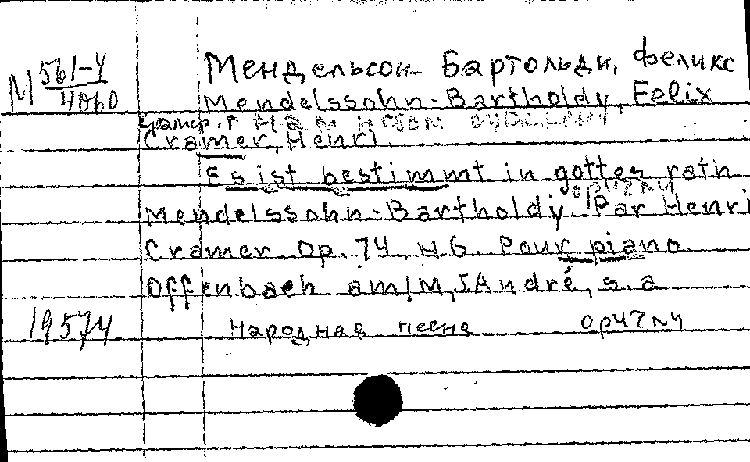 М 561-4
Мендельсон-Бартольди, Феликс
Mendelssohn-Bartholdy, Felix
Cramer, Henri
Es ist bestimmt in gottes rath
Mendelssohn-Bartholdy Par Henri
Cramer Op. 74, N6. Pour piano.
Offenbach am/M, J André, s. a
19574
Народная песня op47 n4